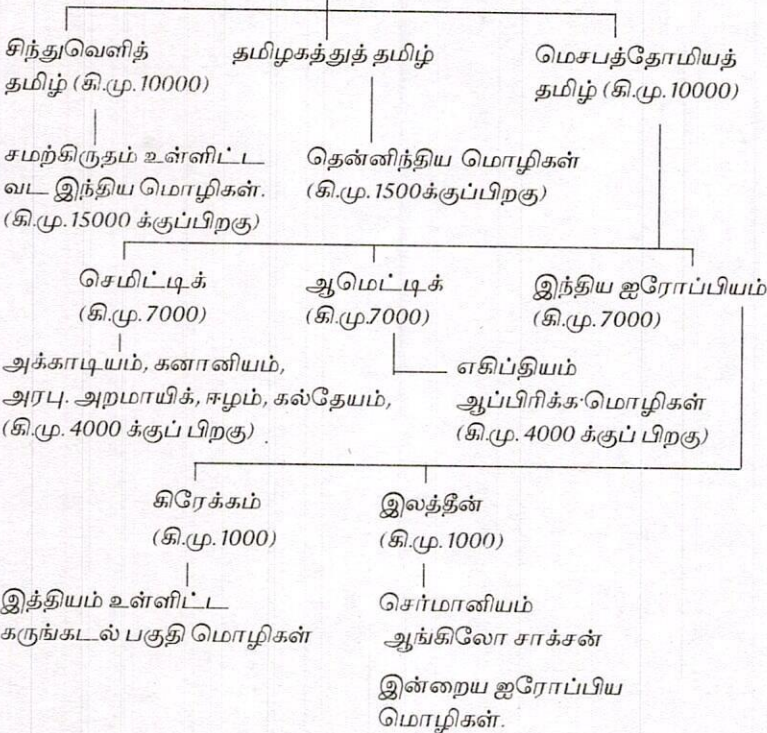 சிந்துவெளித்
தமிழ் (கி.மு. 10000)
தமிழகத்துத் தமிழ்
மெசபத்தோமியத்
தமிழ் (கி.மு. 10000)
சமற்கிருதம் உள்ளிட்ட
வட இந்திய மொழிகள்.
(கி.மு. 15000 க்குப்பிறகு)
தென்னிந்திய மொழிகள்
(கி.மு. 1500க்குப்பிறகு)
செமிட்டிக்
(கி.மு. 7000)
ஆமெட்டிக்
(கி.மு.7000)
இந்திய ஐரோப்பியம்
(கி.மு. 7000)
அக்காடியம், கனானியம்,
அரபு. அறமாயிக், ஈழம், கல்தேயம்,
(கி.மு. 4000 க்குப் பிறகு)
எகிப்தியம்
ஆப்பிரிக்க மொழிகள்
(கி.மு. 4000 க்குப் பிறகு)
கிரேக்கம்
(கி.மு. 1000)
இலத்தீன்
(கி.மு. 1000)
இத்தியம் உள்ளிட்ட
கருங்கடல் பகுதி மொழிகள்
செர்மானியம்
ஆங்கிலோ சாக்சன்
இன்றைய ஐரோப்பிய
மொழிகள்.